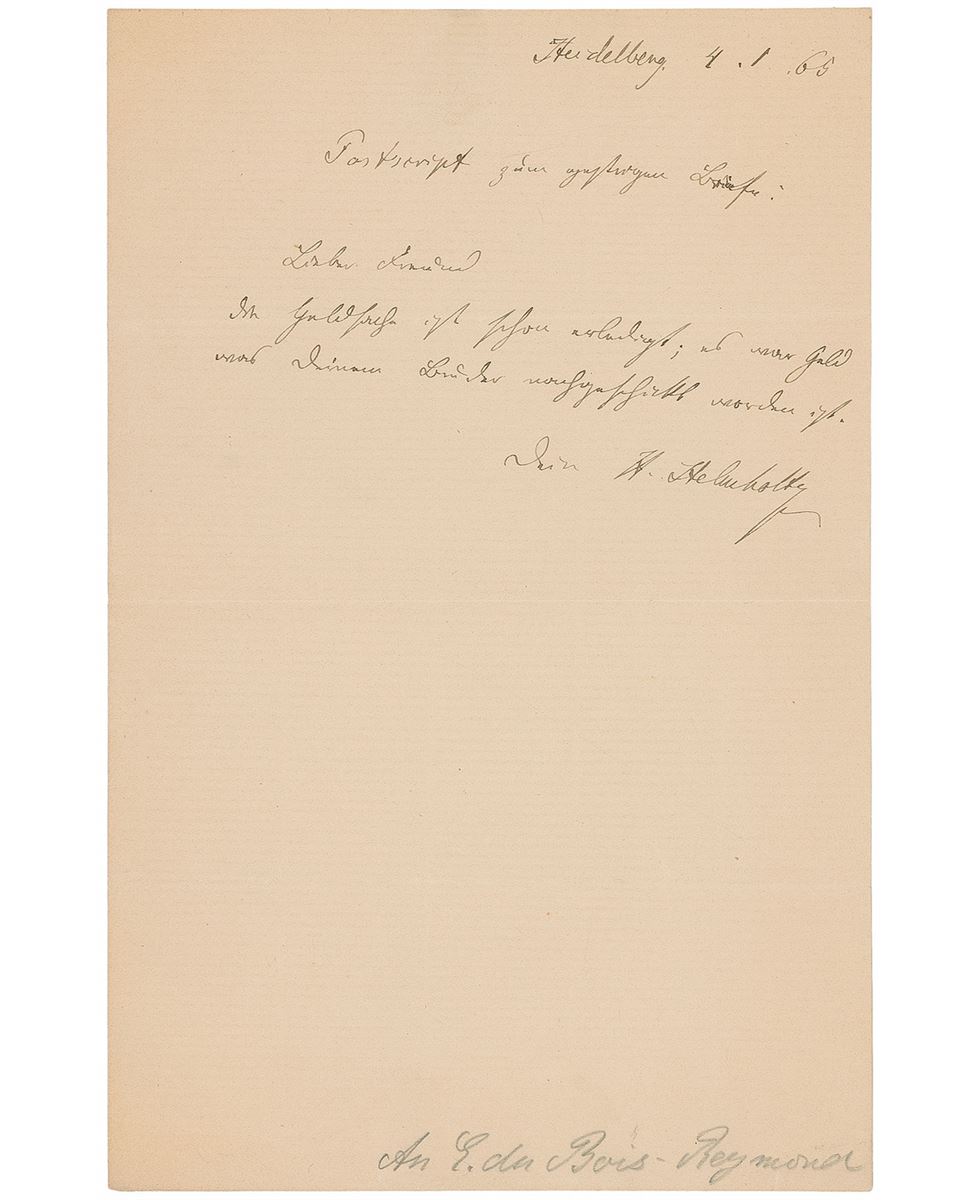 Heidelberg 4.1.65
Postscript zum gestrigen Briefe:
Lieber Freund
die Geldsache ist schon erledigt; es war Geld
was Deinem Bruder nachgeschickt worden ist.
Dein H. Helmholtz
An E. du Bois-Reymond